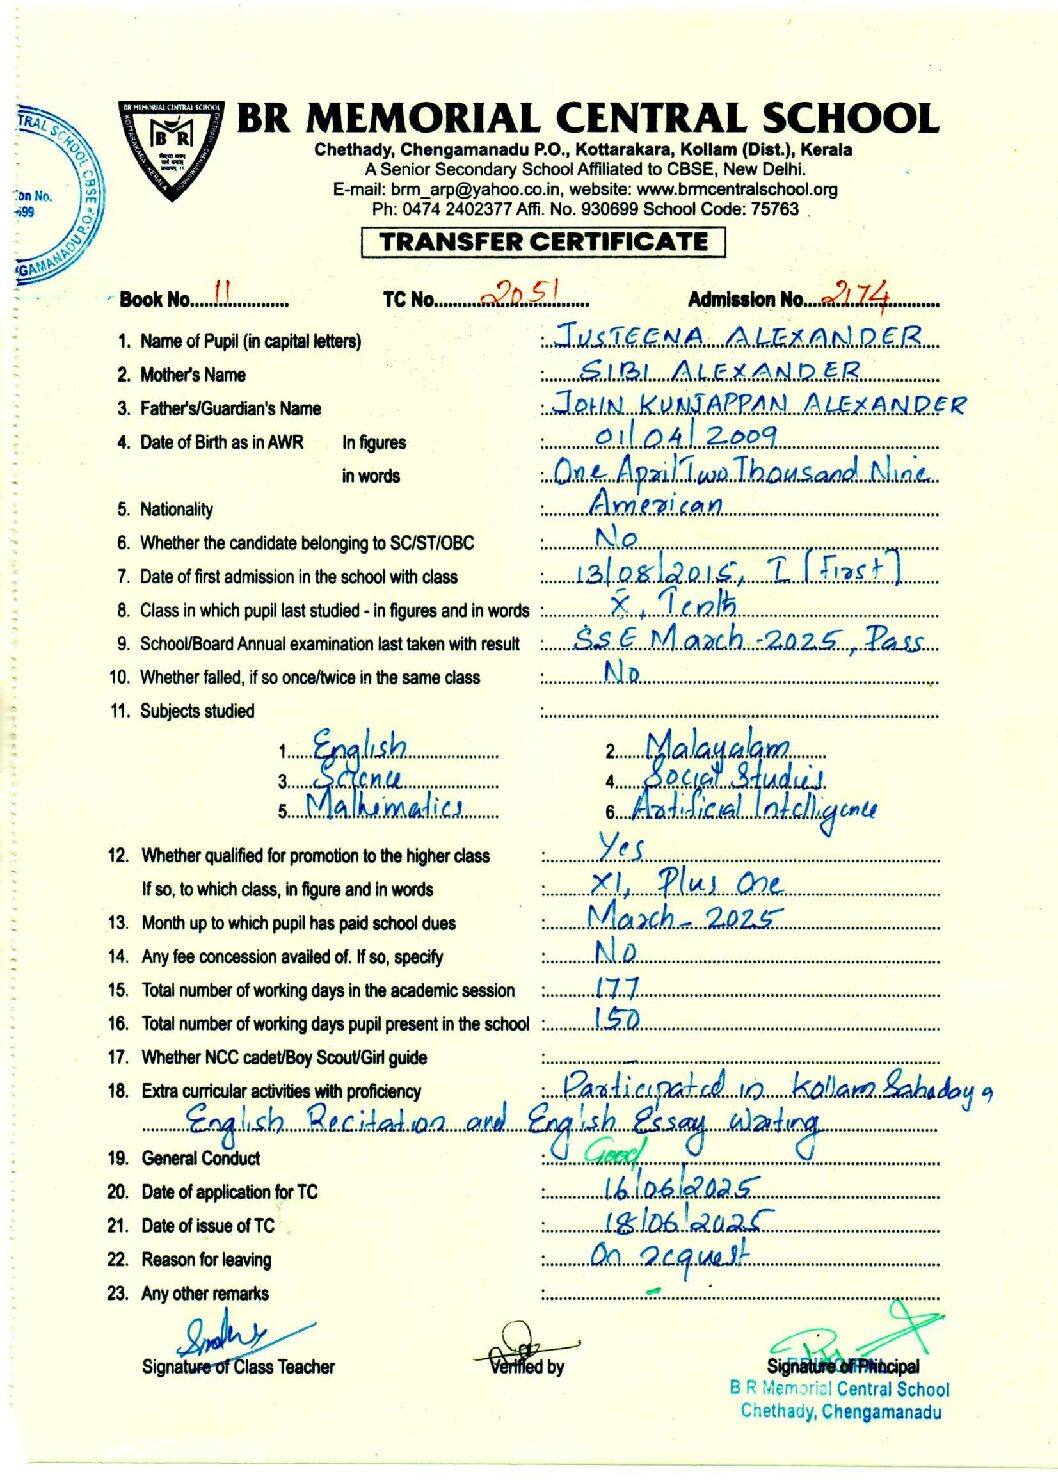 TRAL SCHOOL CBSE
GAMANADU P.O.
on No.
699
BR MEMORIAL CENTRAL SCHOOL
KOTTARAKARA, KERALA
CHETHADY, CHENGAMANADU
B R
BR MEMORIAL CENTRAL SCHOOL
Chethady, Chengamanadu P.O., Kottarakara, Kollam (Dist.), Kerala
A Senior Secondary School Affiliated to CBSE, New Delhi.
E-mail: brm_arp@yahoo.co.in, website: www.brmcentralschool.org
Ph: 0474 2402377 Affi. No. 930699 School Code: 75763
TRANSFER CERTIFICATE
Book No. 11 TC No. 2051 Admission No. 2174
1. Name of Pupil (in capital letters) : JUSTEENA ALEXANDER
2. Mother's Name : SIBI ALEXANDER
3. Father's/Guardian's Name : JOHN KUNJAPPAN ALEXANDER
4. Date of Birth as in AWR In figures : 01/04/2009
in words : One April Two Thousand Nine
5. Nationality : American
6. Whether the candidate belonging to SC/ST/OBC : No
7. Date of first admission in the school with class : 13/08/2015, I (First)
8. Class in which pupil last studied - in figures and in words : X, Tenth
9. School/Board Annual examination last taken with result : SSE March -2025, Pass
10. Whether falled, if so once/twice in the same class : No
11. Subjects studied :
1. English 2. Malayalam
3. Science 4. Social Studies
5. Mathematics 6. Artificial Intelligence
12. Whether qualified for promotion to the higher class : Yes
If so, to which class, in figure and in words : XI, Plus One
13. Month up to which pupil has paid school dues : March - 2025
14. Any fee concession availed of. If so, specify : No
15. Total number of working days in the academic session : 177
16. Total number of working days pupil present in the school : 150
17. Whether NCC cadet/Boy Scout/Girl guide : -
18. Extra curricular activities with proficiency : Participated in Kollam Sahodaya
English Recitation and English Essay Writing
19. General Conduct : Good
20. Date of application for TC : 16/06/2025
21. Date of issue of TC : 18/06/2025
22. Reason for leaving : On request
23. Any other remarks : -
Signature of Class Teacher Verified by Signature of Principal
PRINCIPAL
B R Memorial Central School
Chethady, Chengamanadu